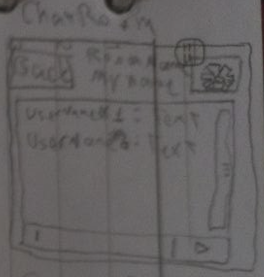 ChatRoom
Back
Room Name
My name
Username1: Text
Username2: Text